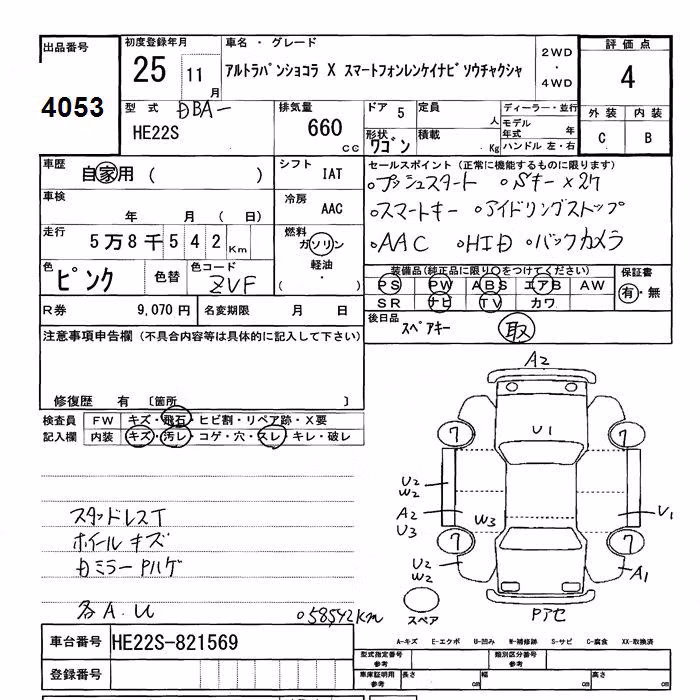 出品番号
4053
初度登録年月
25 11 月
車名・グレード
アルトラパンショコラ X スマートフォンレンケイナビソウチャクシャ
2WD
・
4WD
評価点
4
外装 内装
C B
型式 DBA-
HE22S
排気量
660 cc
ドア 5
形状 ワゴン
定員 人
積載 Kg
ディーラー・並行
モデル年式 年
ハンドル 左・右
車歴 自家用 ( )
シフト IAT
車検 年 月 ( 日)
冷房 AAC
走行 5万8千542 Km
燃料 ガソリン
軽油
・
( )
色 ピンク 色替
色コード ZVF
セールスポイント (正常に機能するものに限ります)
。プッシュスタート 。Sキー×2ケ
。スマートキー 。アイドリングストップ
。AAC 。HID 。バックカメラ
装備品(純正品に限り○をつけてください)
PS PW ABS エアB AW
SR ナビ TV カワ
保証書
有・無
R券 9,070 円
名変期限 月 日
後日品 スペアキー 取
注意事項申告欄 (不具合内容等は具体的に記入して下さい)
修復歴 有 〔箇所 〕
検査員記入欄
FW キズ・飛石・ヒビ割・リペア跡・X要
内装 キズ・汚レ・コゲ・穴・スレ・キレ・破レ
スタッドレスT
ホイールキズ
Dミラー Pハゲ
各A.U
。58542km
A2
U1
7
7
U2
W2
A2
U3
W3
U1
7
7
U2
W2
A1
スペア
Pアセ
A-キズ E-エクボ U-凹み W-補修跡 S-サビ C-腐食 XX-取換済
車台番号 HE22S-821569
登録番号
型式指定番号 参考
類別区分番号 参考
車庫証明用 参考
長さ cm
幅 cm
高さ cm